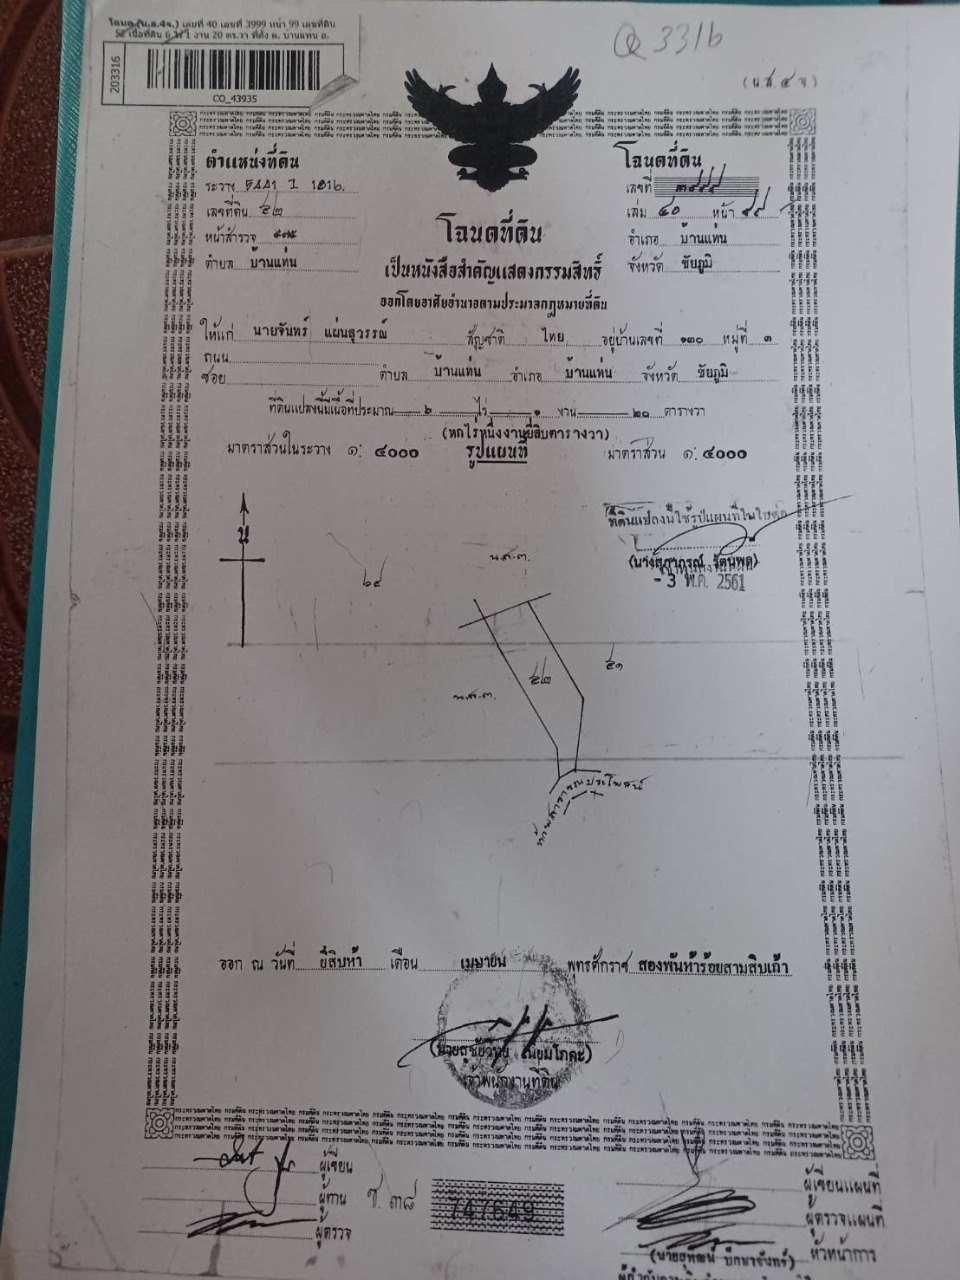 โฉนด (น.ส.4จ.) เลขที่ 40 เลขที่ 3999 หน้า 99 เลขที่ดิน
52 เนื้อที่ดิน 6 ไร่ 1 งาน 20 ตร.วา ที่ตั้ง ต. บ้านแท่น อ.
203316
CO_43935
3316
(น.ส.๔ จ)
ตำแหน่งที่ดิน
ระวาง 5441 I 1816.
เลขที่ดิน ๕๒
หน้าสำรวจ ๔๗๕
ตำบล บ้านแท่น
โฉนดที่ดิน
เลขที่ ๓๙๙๙
เล่ม ๔๐ หน้า ๙๙
อำเภอ บ้านแท่น
จังหวัด ชัยภูมิ
โฉนดที่ดิน
เป็นหนังสือสำคัญแสดงกรรมสิทธิ์
ออกโดยอาศัยอำนาจตามประมวลกฎหมายที่ดิน
ให้แก่ นายจันทร์ แผ่นสุวรรณ์ สัญชาติ ไทย อยู่บ้านเลขที่ ๑๓๐ หมู่ที่ ๓
ถนน
ซอย ตำบล บ้านแท่น อำเภอ บ้านแท่น จังหวัด ชัยภูมิ
ที่ดินแปลงนี้มีเนื้อที่ประมาณ ๖ ไร่ ๑ งาน ๒๐ ตารางวา
(หกไร่หนึ่งงานยี่สิบตารางวา)
มาตราส่วนในระวาง ๑: ๔๐๐๐ รูปแผนที่ มาตราส่วน ๑: ๔๐๐๐
ที่ดินแปลงนี้ใช้รูปแผนที่ในใบต่อ
- 3 พ.ค. 2561
น
น.ส.๓.
๕๒
๕๑
น.ส.๓.
ทางสาธารณประโยชน์
ออก ณ วันที่ ยี่สิบห้า เดือน เมษายน พุทธศักราช สองพันห้าร้อยสามสิบเก้า
เจ้าพนักงานที่ดิน
ผู้เขียน
ผู้ทาน
ผู้ตรวจ
ช ๓๘
747649
ผู้เขียนแผนที่
ผู้ตรวจแผนที่
หัวหน้าการ